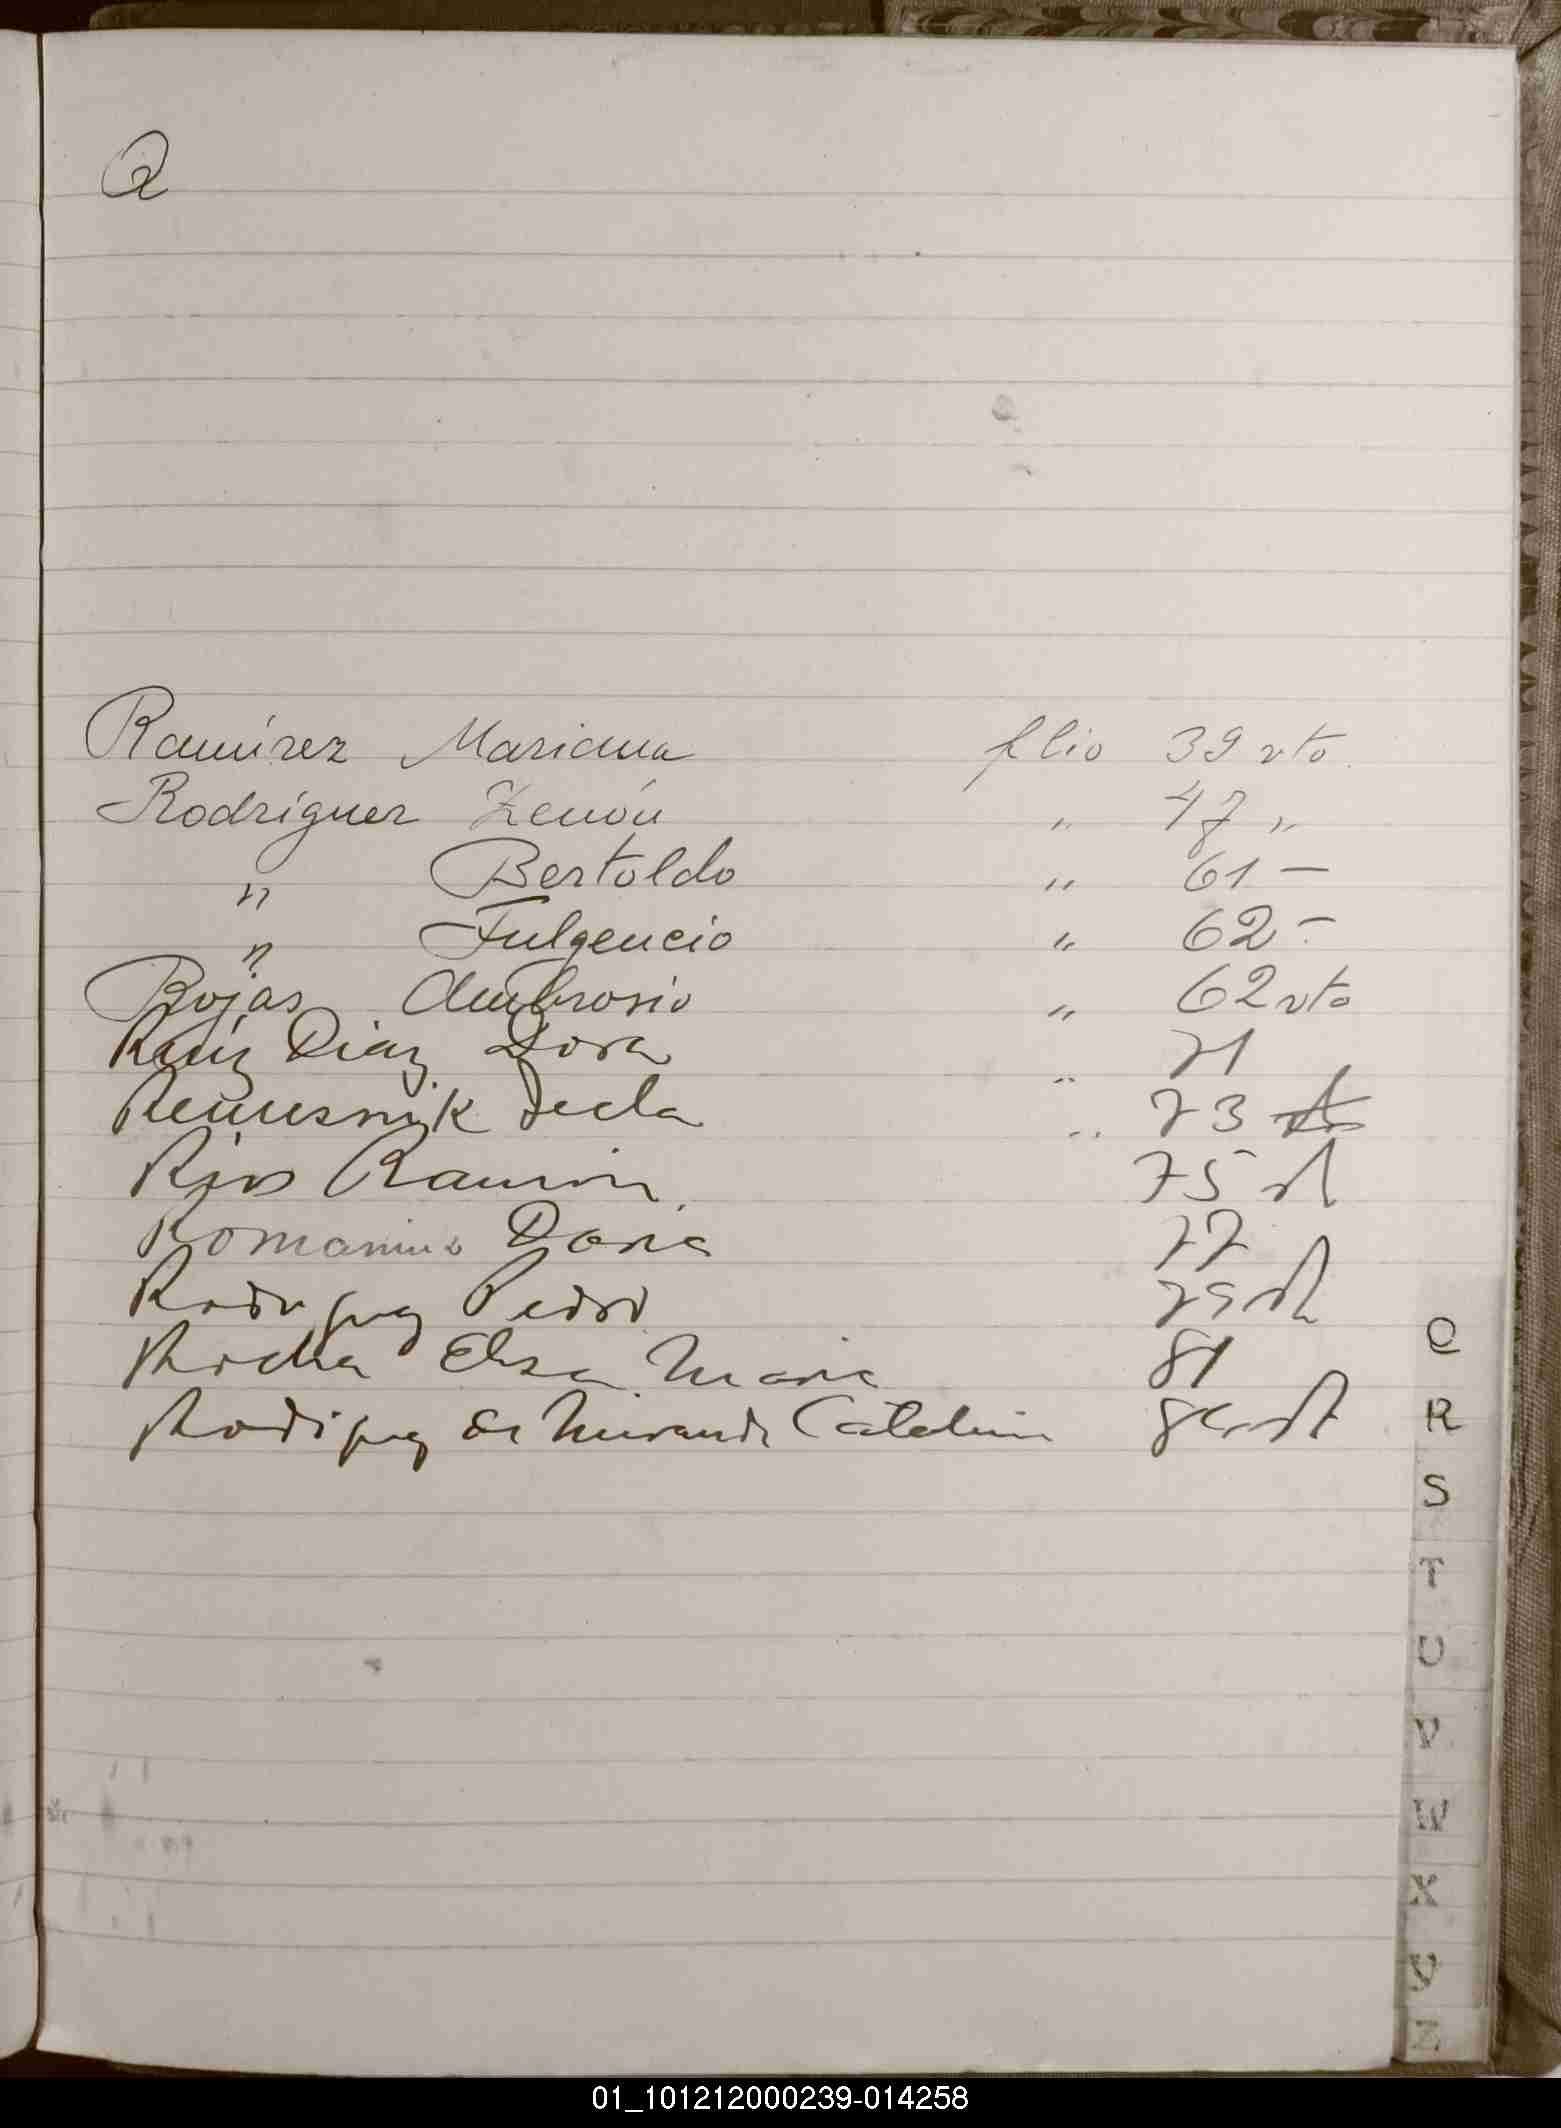 Q
Ramírez Mariana flio 39 vto.
Rodríguez Zenón " 47 "
" Bertoldo " 61 –
" Fulgencio " 62 –
Rojas Ambrosio " 62 vto
Ruiz Diaz Dora " 71
Tecla " 73
Rios Ramón 75 vt
Romaniuk Daria 77
Rodriguez Pedro 79 vt
Rocha Elsa Maria 81
Rodriguez de Miranda Catalina
Q
R
S
T
U
V
W
X
Y
Z
01_101212000239-014258